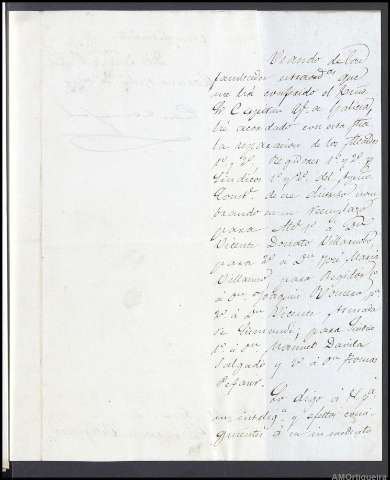 Usando de las
facultades estraord.as que
me ha conferido el Exmo
Sr. Capitan G.l de Galicia,
he acordado con esta fha
la separacion de los Alcaldes
1º y 2º, Regidores 1º y 2º y
Sindicos 1º y 2º del Ayunt.
Const.l de ese distrito nom
brando en su reemplazo
para Alc.e 1º á Don
Vicente Donato Villarnobo,
para 2º á D.n José Maria
Villamil, para Regidor 1º
á D.n Joaquin Romero, p.a
2º á D.n Vicente Armada
de ; para Sindico
1º á D.n Manuel Davila
Salgado y 2º á D.n Tomas
Pefaur.
Lo digo á V. p.a
su intelig.a y efectos consi-
guientes á su inmediato
AMOrtigueira